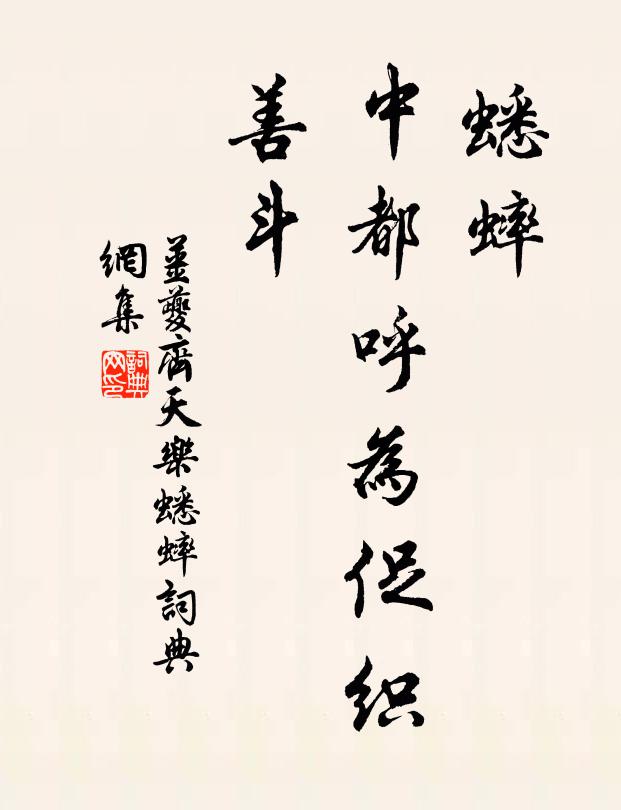 蟋蟀
中都呼為促织
善斗
姜夔齊天樂蟋蟀詞典
網集
詞典
网印